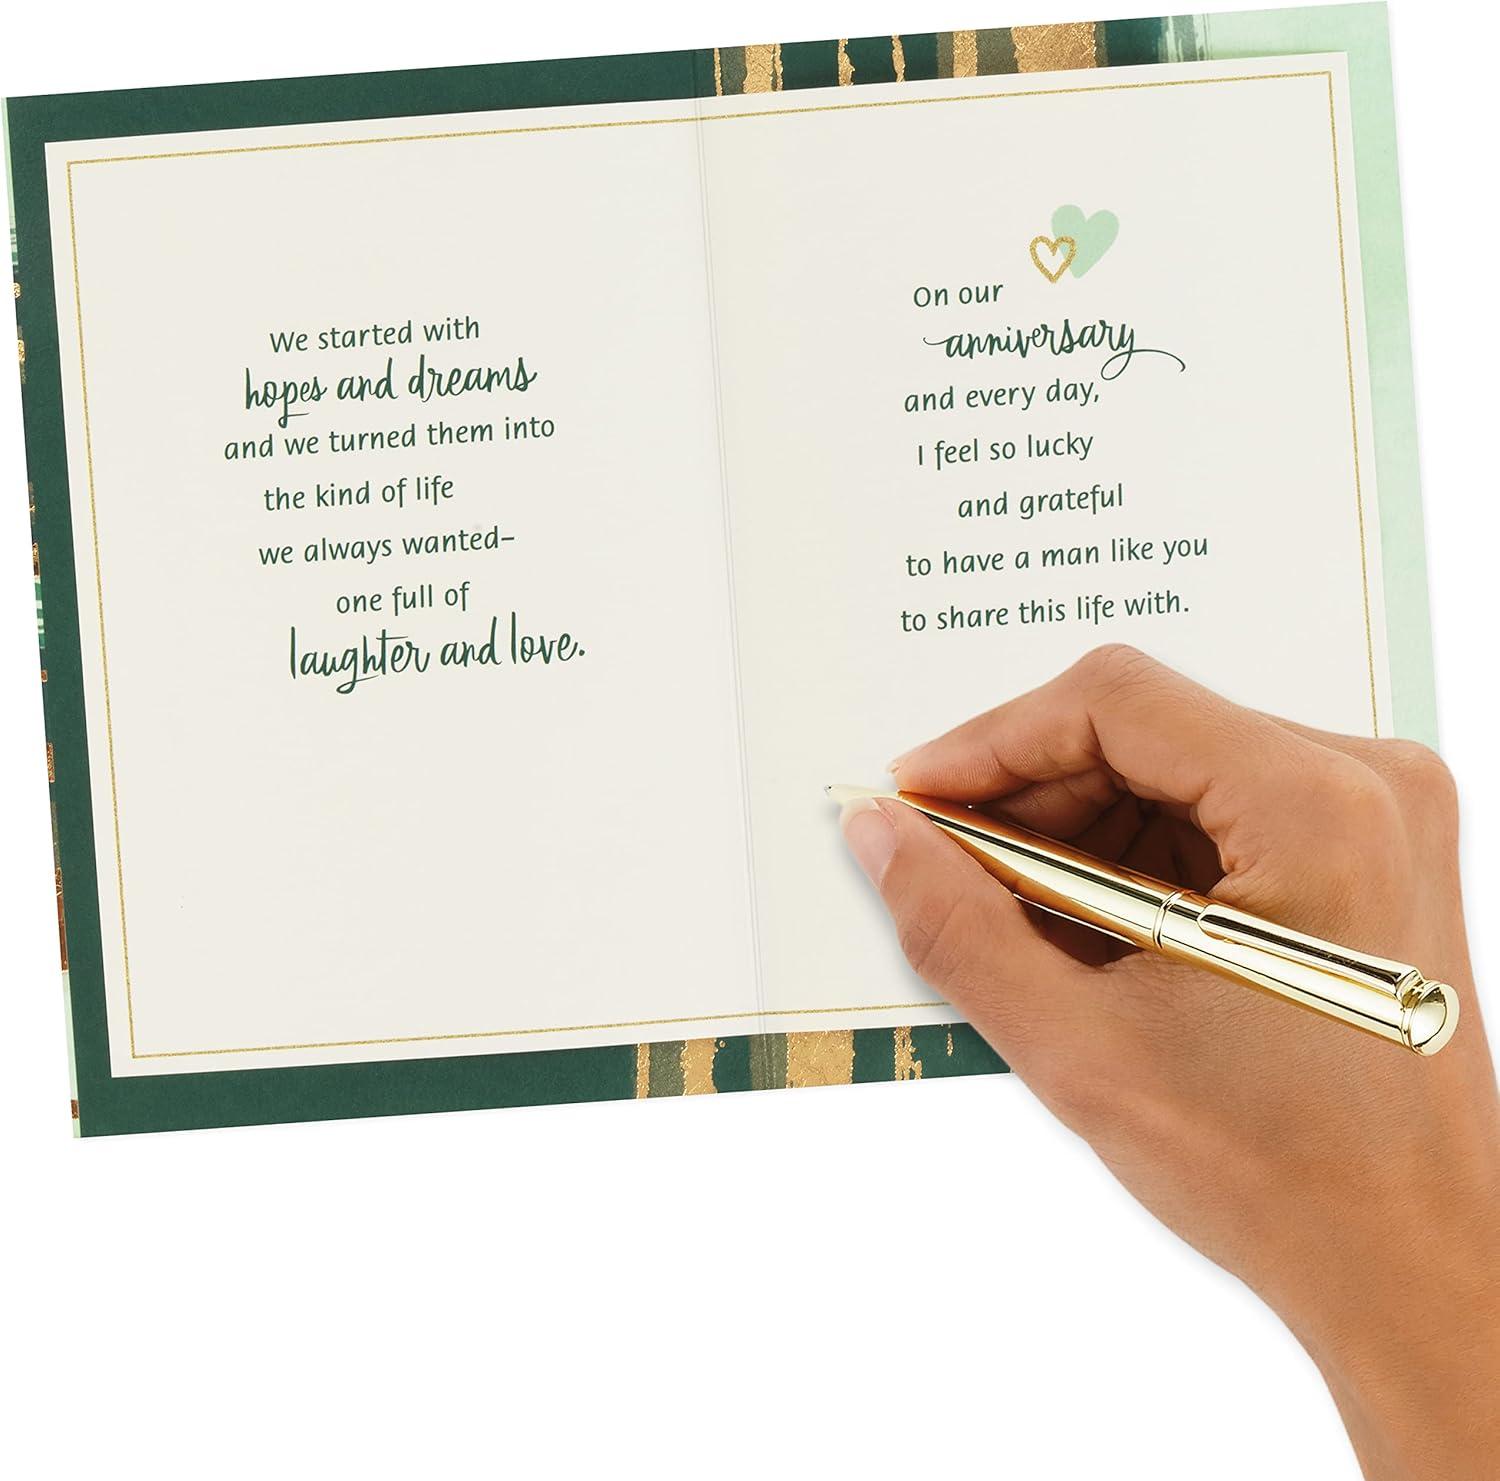 We started with
hopes and dreams
and we turned them into
the kind of life
we always wanted–
one full of
laughter and love.
On our
anniversary
and every day,
I feel so lucky
and grateful
to have a man like you
to share this life with.